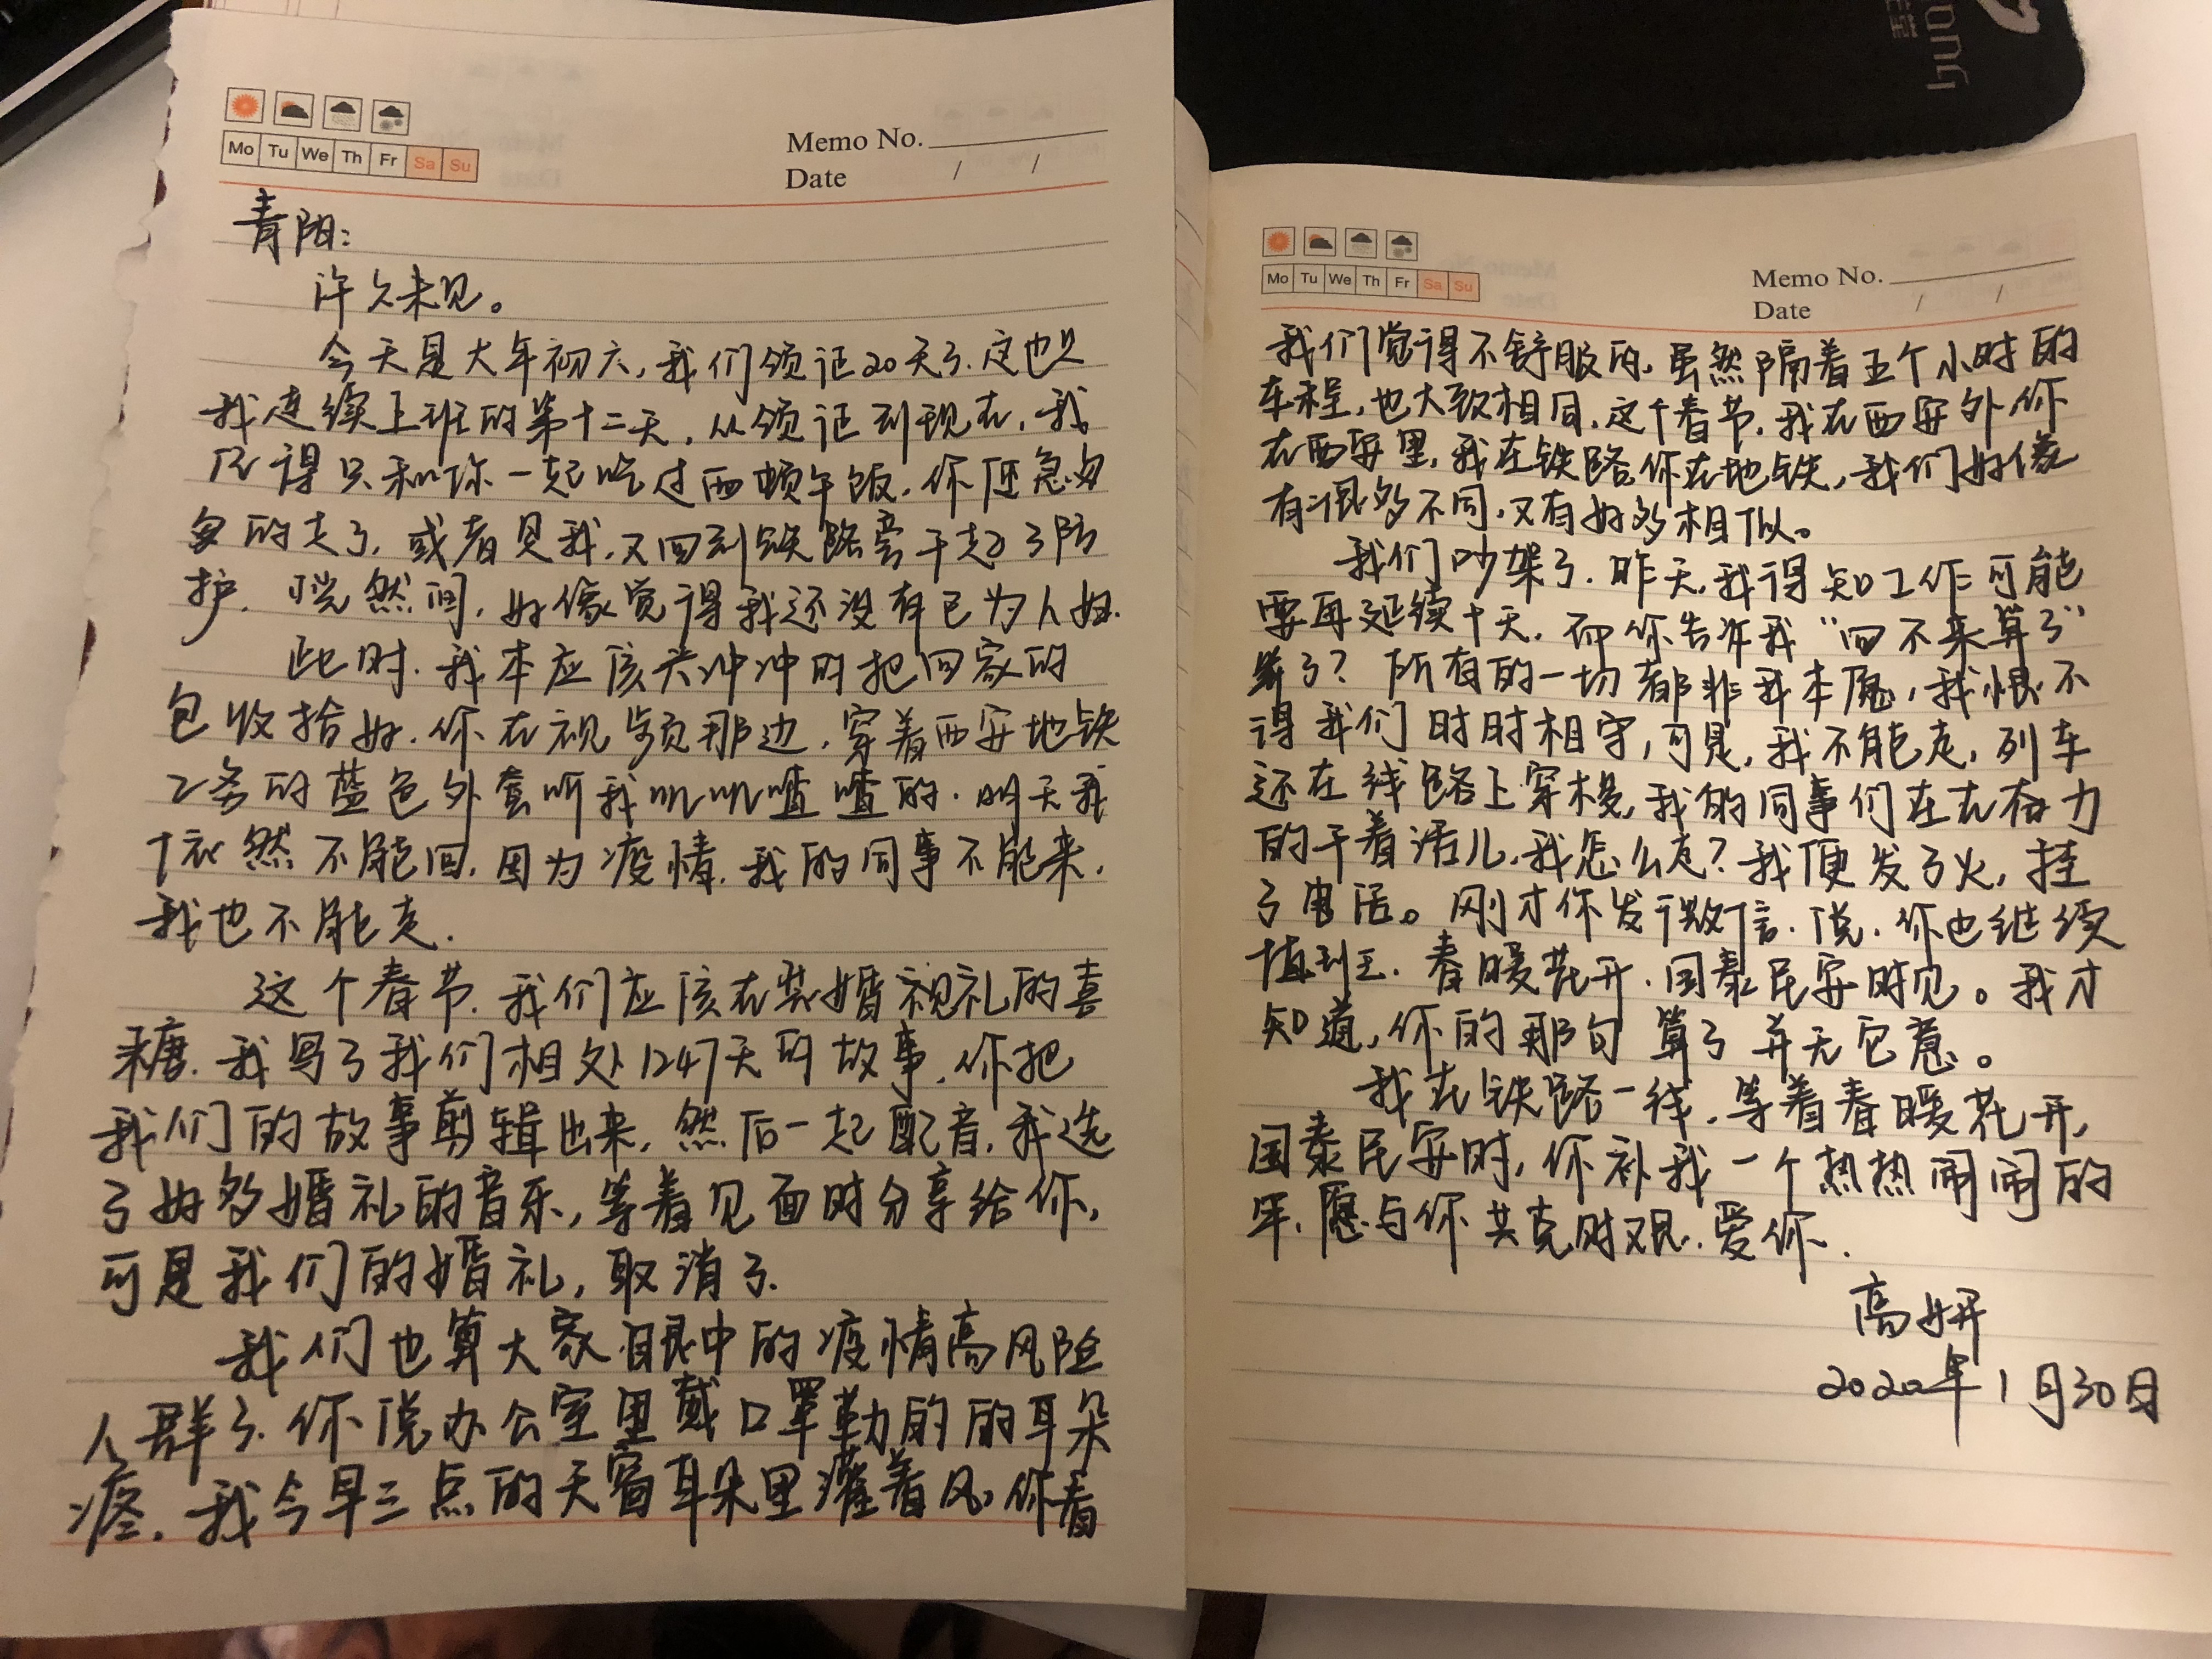 Mo Tu We Th Fr Sa Su
Memo No.
Date / /
青阳:
许久未见。
今天是大年初六,我们领证20天了.这也是
我连续上班的第十二天.从领证到现在,我
记得只和你一起吃过两顿午饭.你便匆匆
的走了,或者是我,又回到铁路旁干起了防
护.恍然间,好像觉得我还没有已为人妇.
此时.我本应该兴冲冲的把回家的
包收拾好.你在视频那边,穿着西安地铁
2条的蓝色外套听我叽叽喳喳的.明天我
依然不能回.因为疫情.我的同事不能来.
我也不能走.
这个春节.我们应该在装婚礼的喜
糖.我写了我们相处1247天的故事.你把
我们的故事剪辑出来,然后一起配音,我选
了好多婚礼的音乐,等着见面时分享给你,
可是我们的婚礼,取消了.
我们也算大家眼中的疫情高风险
人群了.你说办公室里戴口罩勒的的耳朵
疼.我今早三点的天窗耳朵里灌着风,你看
huony
Mo Tu We Th Fr Sa Su
Memo No.
Date / /
我们觉得不舒服的.虽然隔着五个小时的
车程,也大致相同.这个春节.我在西安外你
在西安里,我在铁路你在地铁,我们好像
有很多不同.又有好多相似。
我们吵架了.昨天.我得知工作可能
要再延续十天.而你告诉我“回不来算了”
算了?所有的一切都非我本愿,我恨不
得我们时时相守,可是,我不能走,列车
还在线路上穿梭,我的同事们在在奋力
的干着活儿,我怎么走?我便发了火,挂
了电话。刚才你发微信.说.你也继续
值到五.春暖花开.国泰民安时见。我才
知道,你的那句算了并无它意。
我在铁路一线.等着春暖花开,
国泰民安时,你补我一个热热闹闹的
年.愿与你共克时艰.爱你.
高妍
2020年1月30日